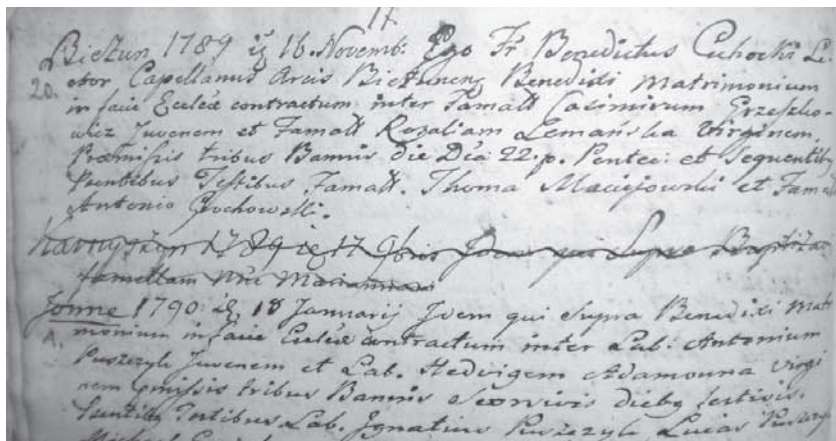 17
Bieżun 1789 16. Novemb: Ego Fr. Benedictus Cichocki Le-
20. ctor Capellanus Arcis Biezunens Benedixi Matrimonium
in facie Eccliæ contractum inter Famatt Casimirum Grzeszko-
wicz Juvenem et Famatt Rozaliam Lemańska Virginem,
Præmissis tribus Bannis die Dñca 22. p. Pentec: et Sequentib9
Præntibus Testibus Famatt. Thoma Maciejowski et Famatt
Antonio Grochowski.
1789 17 9bris Idem qui Supra
famellam Marianna
Jonne 1790 18 Januarij Idem qui Supra Benedixi Mat
1. monium in facie Eccliæ contractum inter Lab: Antonium
Puszczyk Juvenem et Lab. Hedvigem Adamowna Virgi
nem pmissis tribus Bannis dieb9 festivis.
Testibus Lab. Ignatius Puszczyk Lucas
Michael